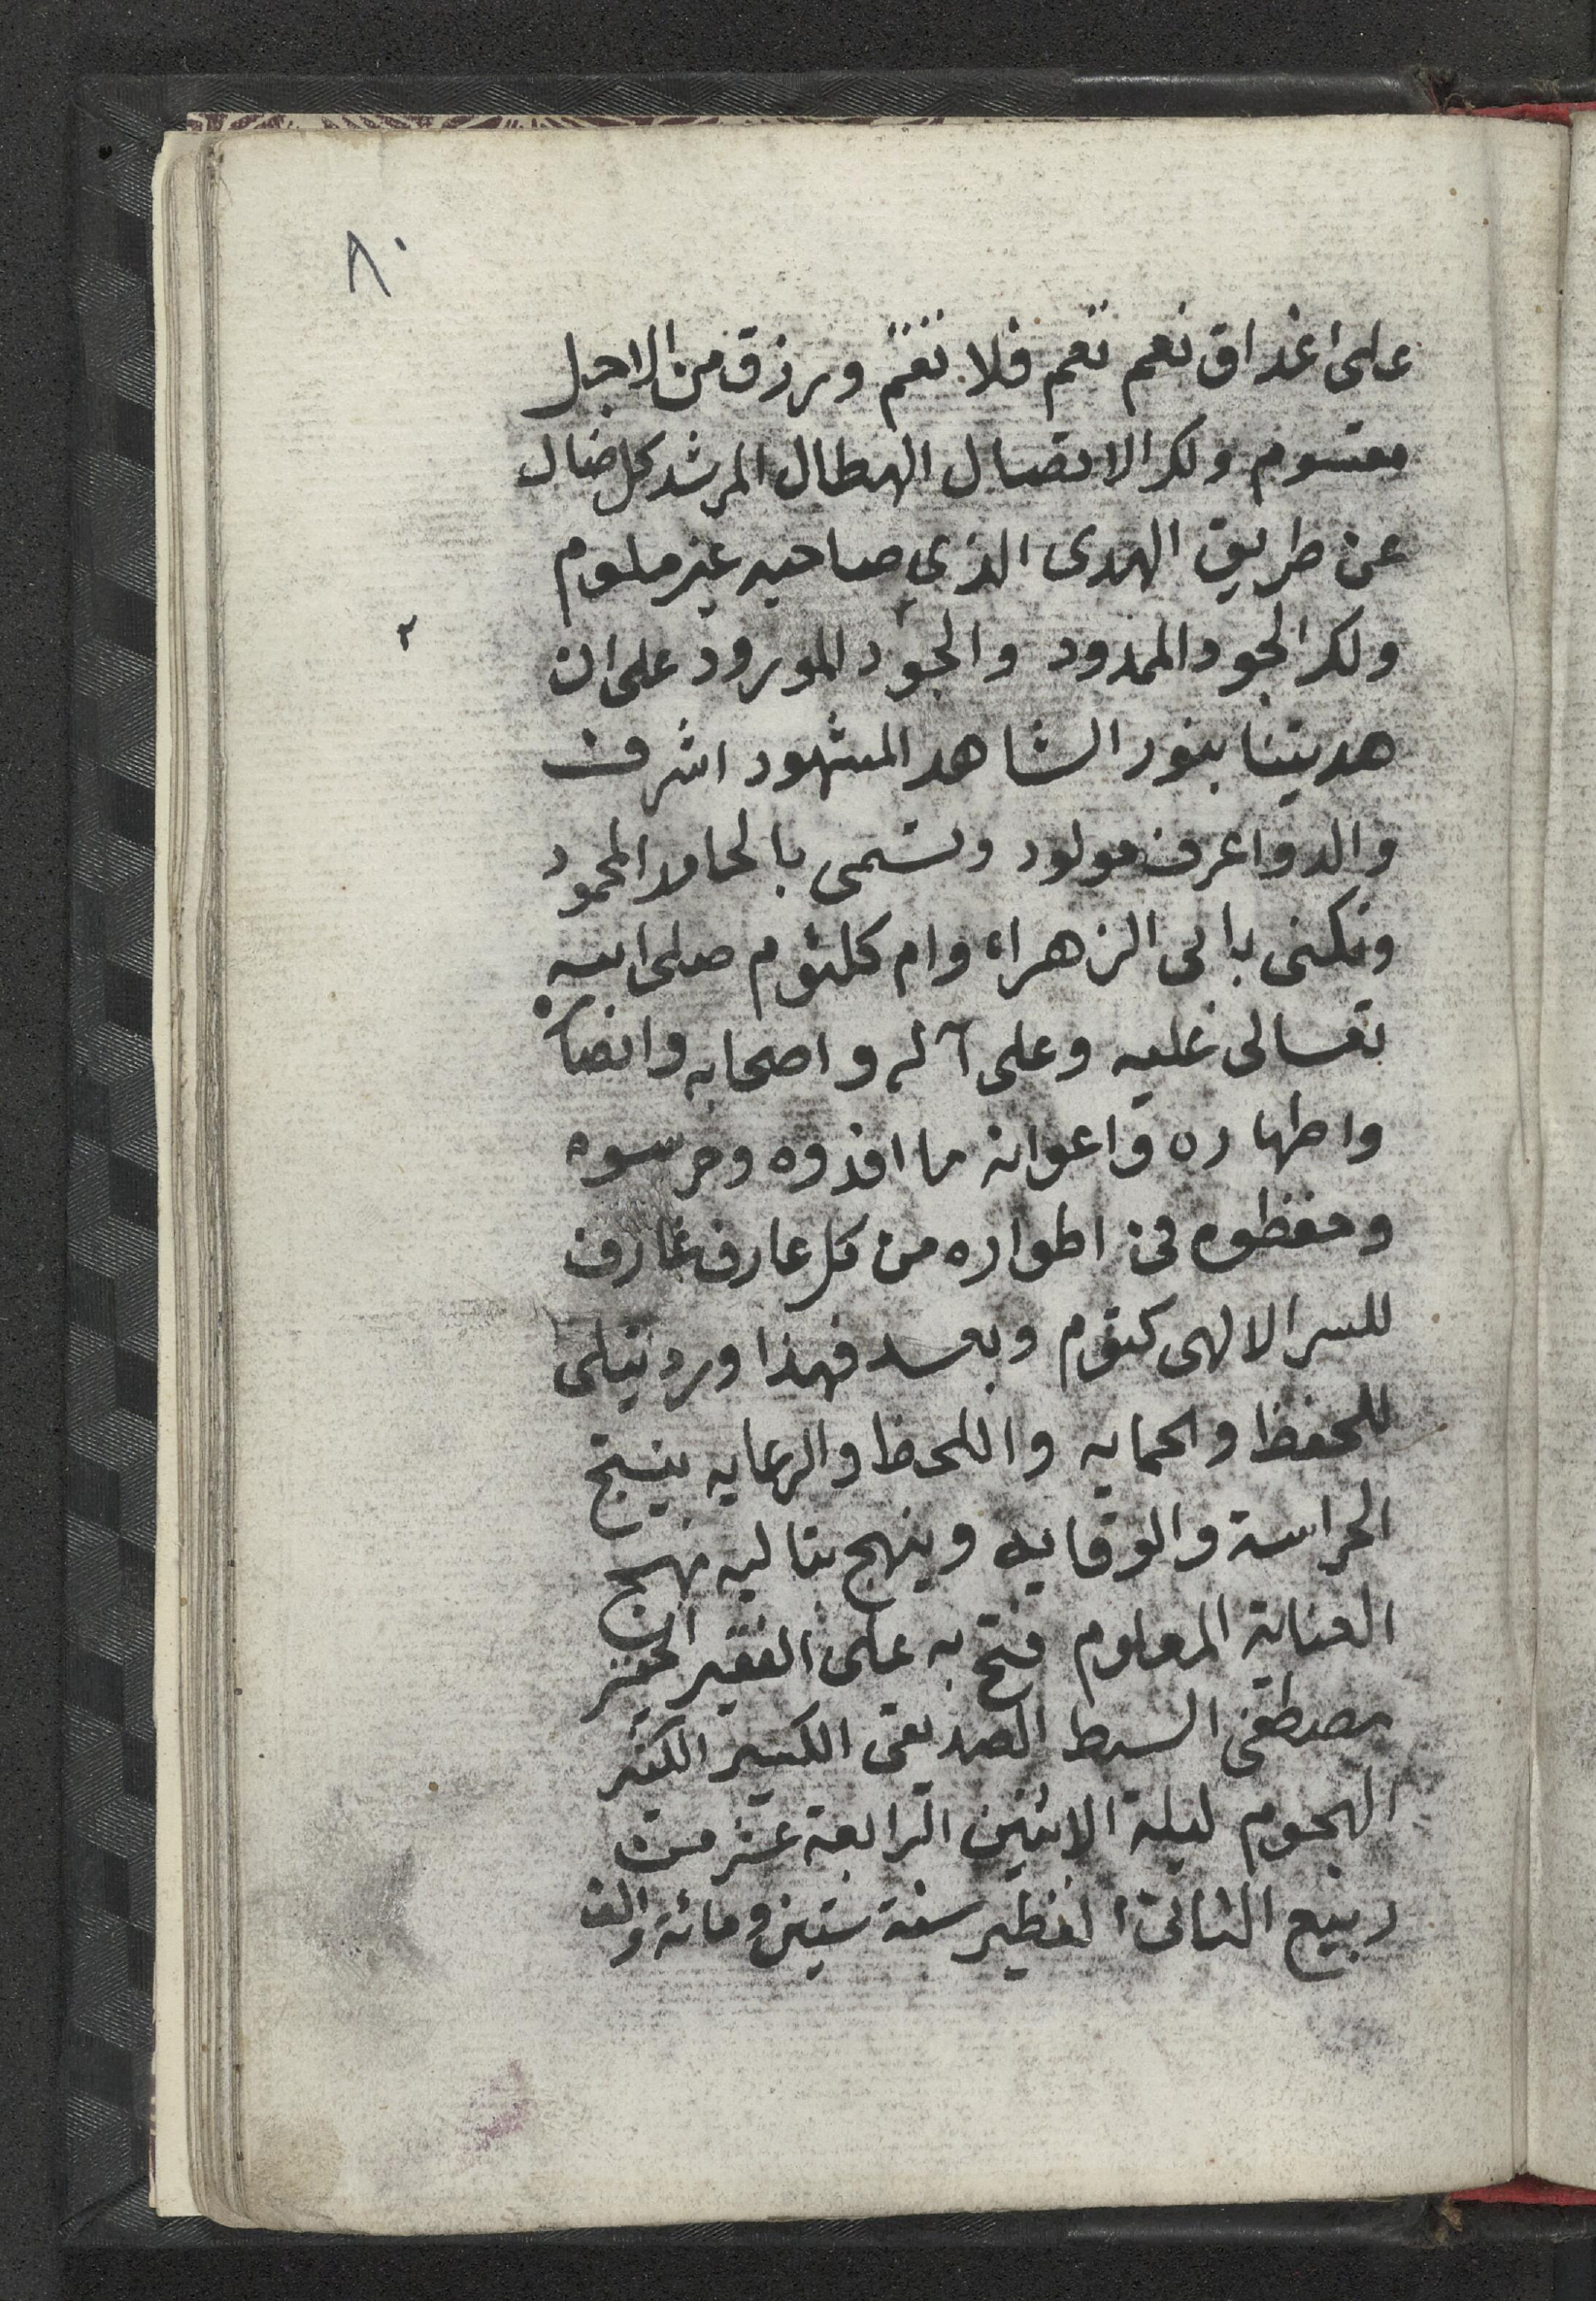 ٨٠
على اغداق نعم تعم فلا تغم ورزق من الاجل
مقسوم ولك الاتصال الهطال المرشد كل ضال
عن طريق الهدى الذي صاحبه غير ملوم
٢
ولك الجود الممدود والجود المورود على ان
هديتنا بنور الشاهد المشهود اشرف
والد واعرف مولود وتسمى بالحامد المحمود
وتكنى بابى الزهراء وام كلثوم صلى الله
تعالى عليه وعلى آله واصحابه وانصاره
واطهاره واعوانه ما افدوه وحرسوه
وحفظوه في اطواره من كل عارف غارف
للسر الالهى كتوم وبعد فهذا ورد يتلى
للحفظ والحمايه واللحظ والرعايه ينتج
الحراسة والوقايه وينهج بتاليه نهج
العناية المعلوم فتح به على الفقير الحقير
مصطفى السبط الصديقى الكسير الكثير
الهجوم ليلة الاثنين الرابعة عشر من
ربيع الثانى سنة ستين ومائة والف